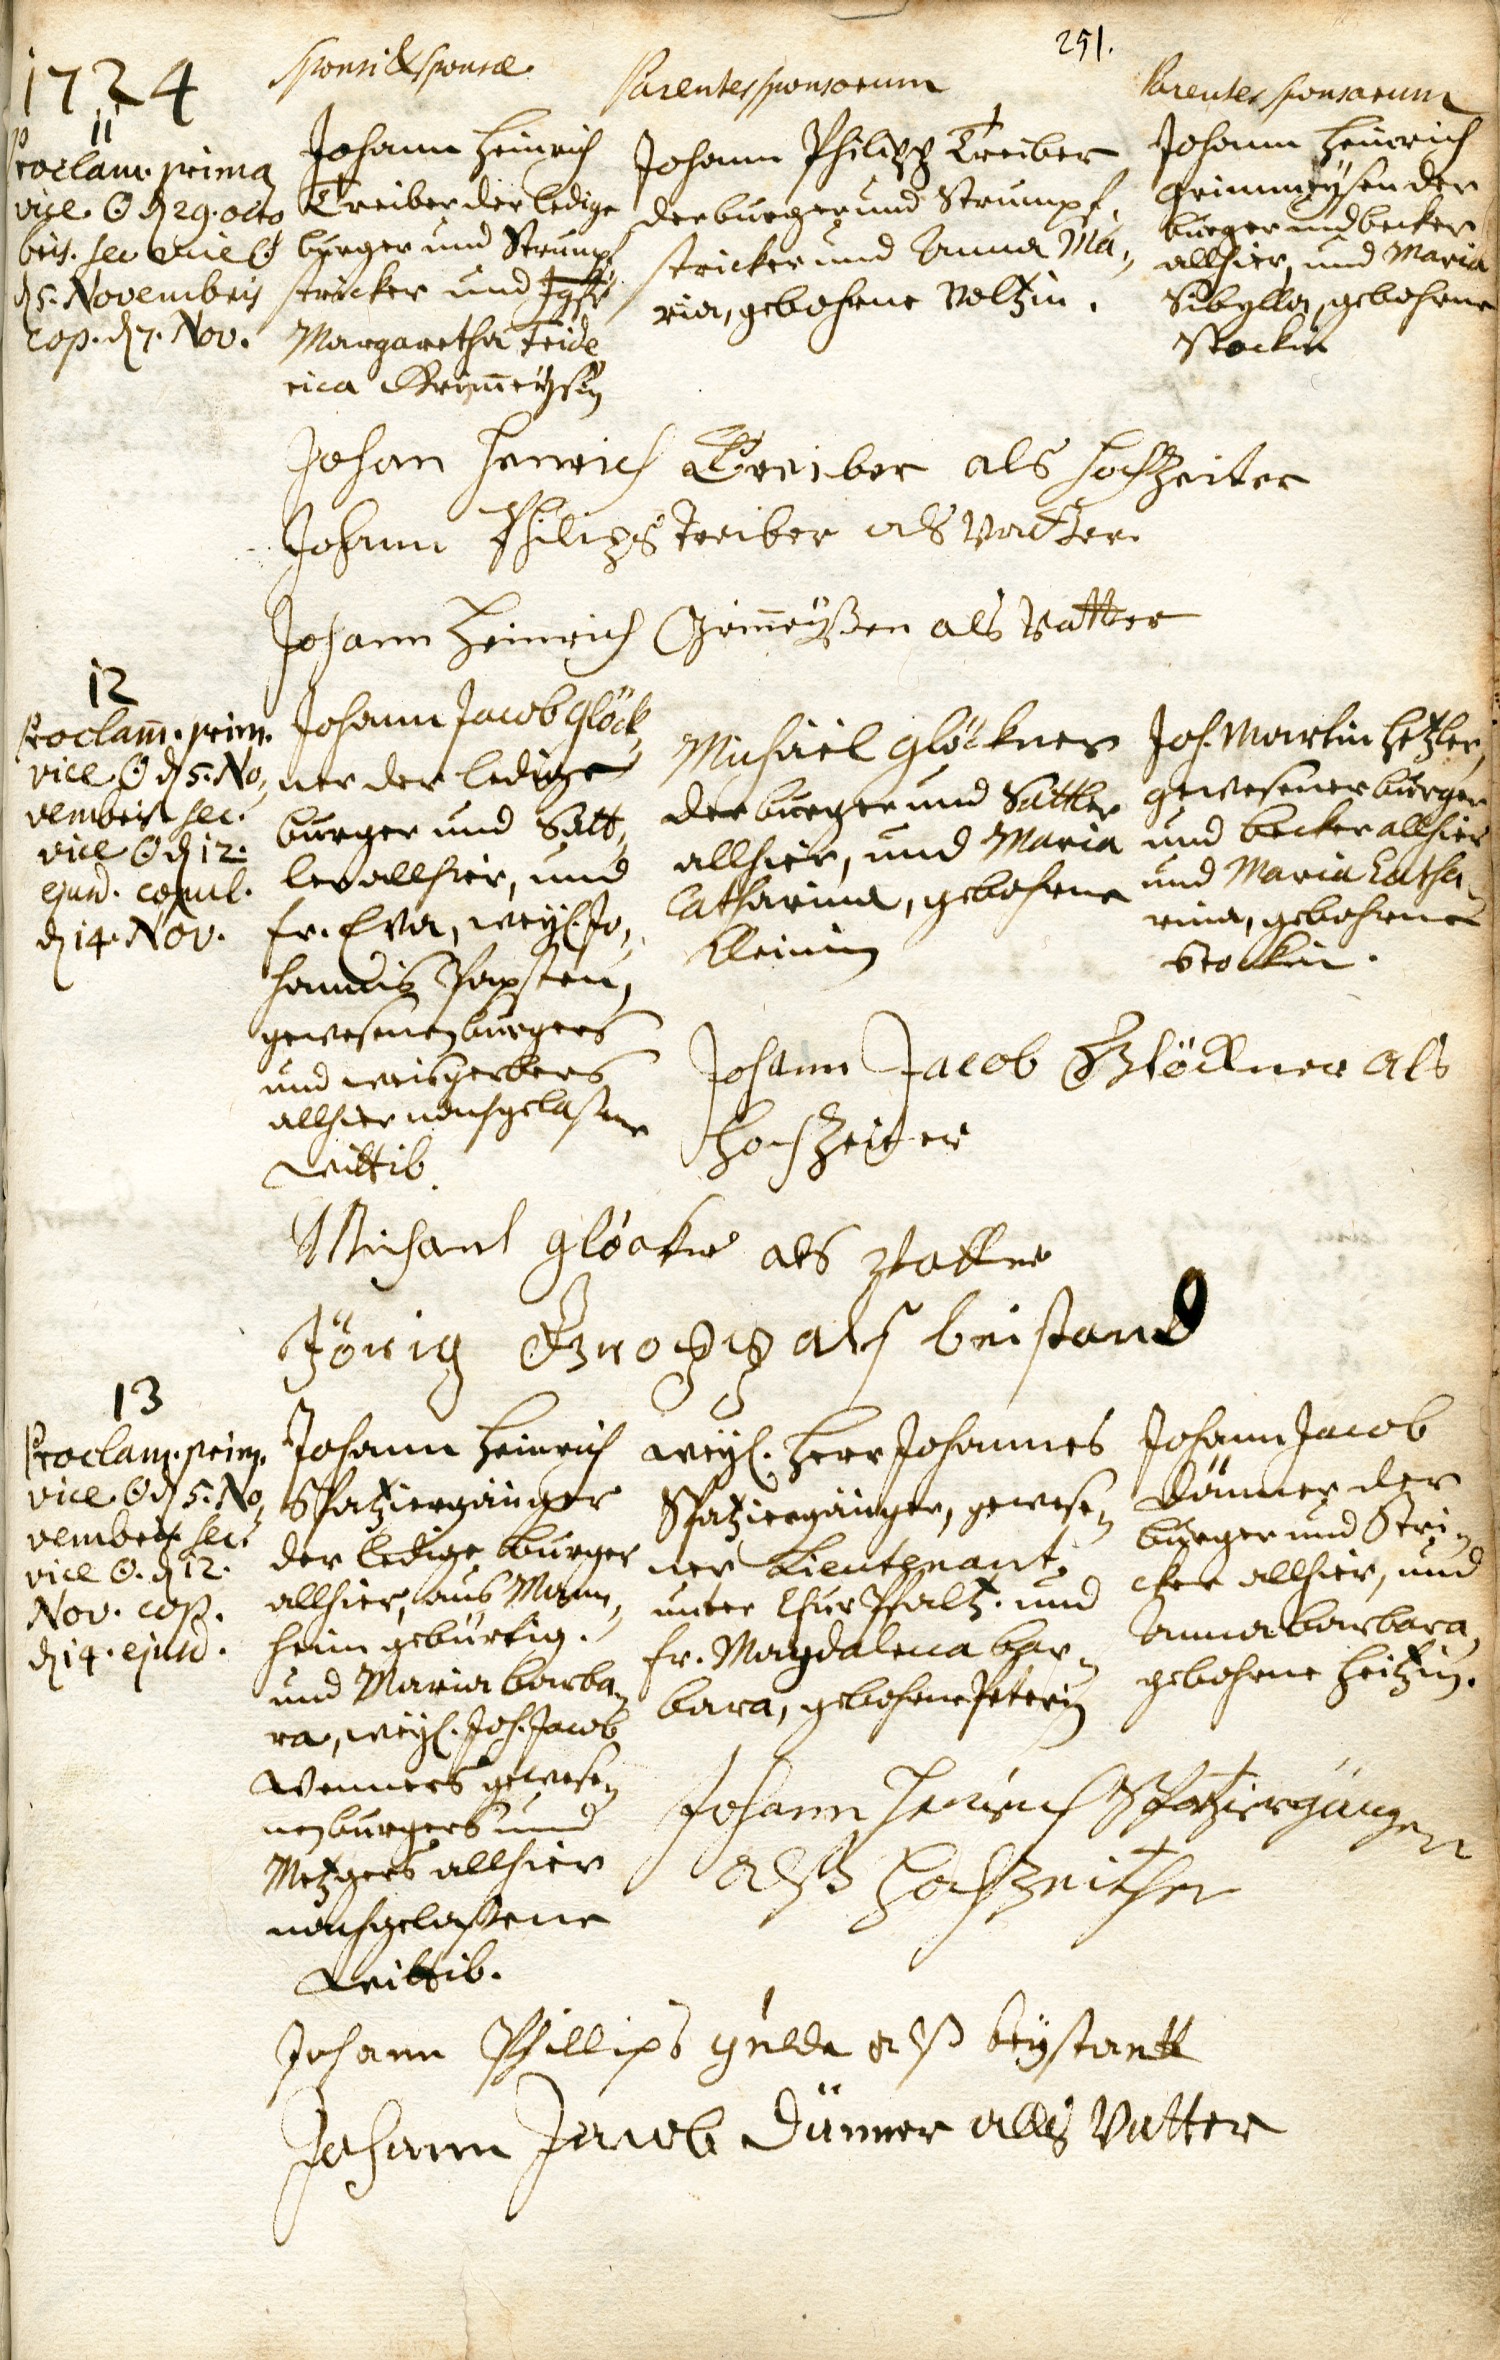 251.
1724
Sponsi & Sponsae
Parentes sponsorum
Parentes sponsarum
11
Proclam. prima
vice ☉ d 29. octo
bris. sec vice ☉
d 5. Novembris
cop. d 7. Nov.
Johann Heinrich
Treiber der ledige
burger und Strumpf
stricker und Jgfr
Margaretha Fride
rica Grim̅eysin
Johann Philipp Treiber
der burger und Strumpf,
stricker und Anna Ma,,
ria, gebohrne Voltzin.
Johann Heinrich
Grimmeysen der
burger und becker
allhier, und Maria
Sibylla, gebohrne
Stockin
Johan Henrich Treiber als Hochzeiter
Johann Philips Treiber als Vatter
Johann Heinrich Grim̅eyßen als Vatter
12
Proclam̅. prim.
vice ☉ d 5. No,,
vembris sec.
vice ☉ d 12.
ejusd. copul.
d 14. Nov.
Johann Jacob Glöck,,
ner der ledige
burger und Satt,,
ler allhier, und
fr. Eva, weyl. Jo,,
hannis Papsten,
gewesenen burgers
und weisgerbers
allhier nachgelaßene
Wittib.
Michaël Glöckner
der burger und Sattler
allhier, und Maria
Catharina, gebohrne
Kleinin
Joh. Martin Hetzler,
gewesener burger
und becker allhier
und Maria Catha,,
rina, gebohrne
Stockin.
Johann Jacob Glöckner als
Hochzeiter
Michael Glöckner als Vatter
Jörig Gropp als beistand
13
Proclam. prim.
vice ☉ d 5. No,,
vembris sec.
vice ☉. d 12.
Nov. cop.
d 14. ejusd.
Johann Heinrich
Spatziergänger
der ledige burger
allhier, aus Mann,,
heim gebürtig.
und Maria barba,,
ra, weyl. Joh. Jacob
Wenners gewese,,
nen burgers und
Metzgers allhier
nachgelaßene
Wittib.
weyl. Herr Johannes
Spatziergänger, gewese,,
ner Lieutenant
unter Chur Pfaltz. und
fr. Magdalena bar,,
bara, gebohrne Peterin
Johann Jacob
Dänner der
burger und Stri,,
cker allhier, und
Anna barbara,
gebohrne Heitzin.
Johann Henrich Spatziergänger
alß Hochzeither
Johann Phillips Gulde alß beystantt
Johann Jacob Dänner alls Vatter